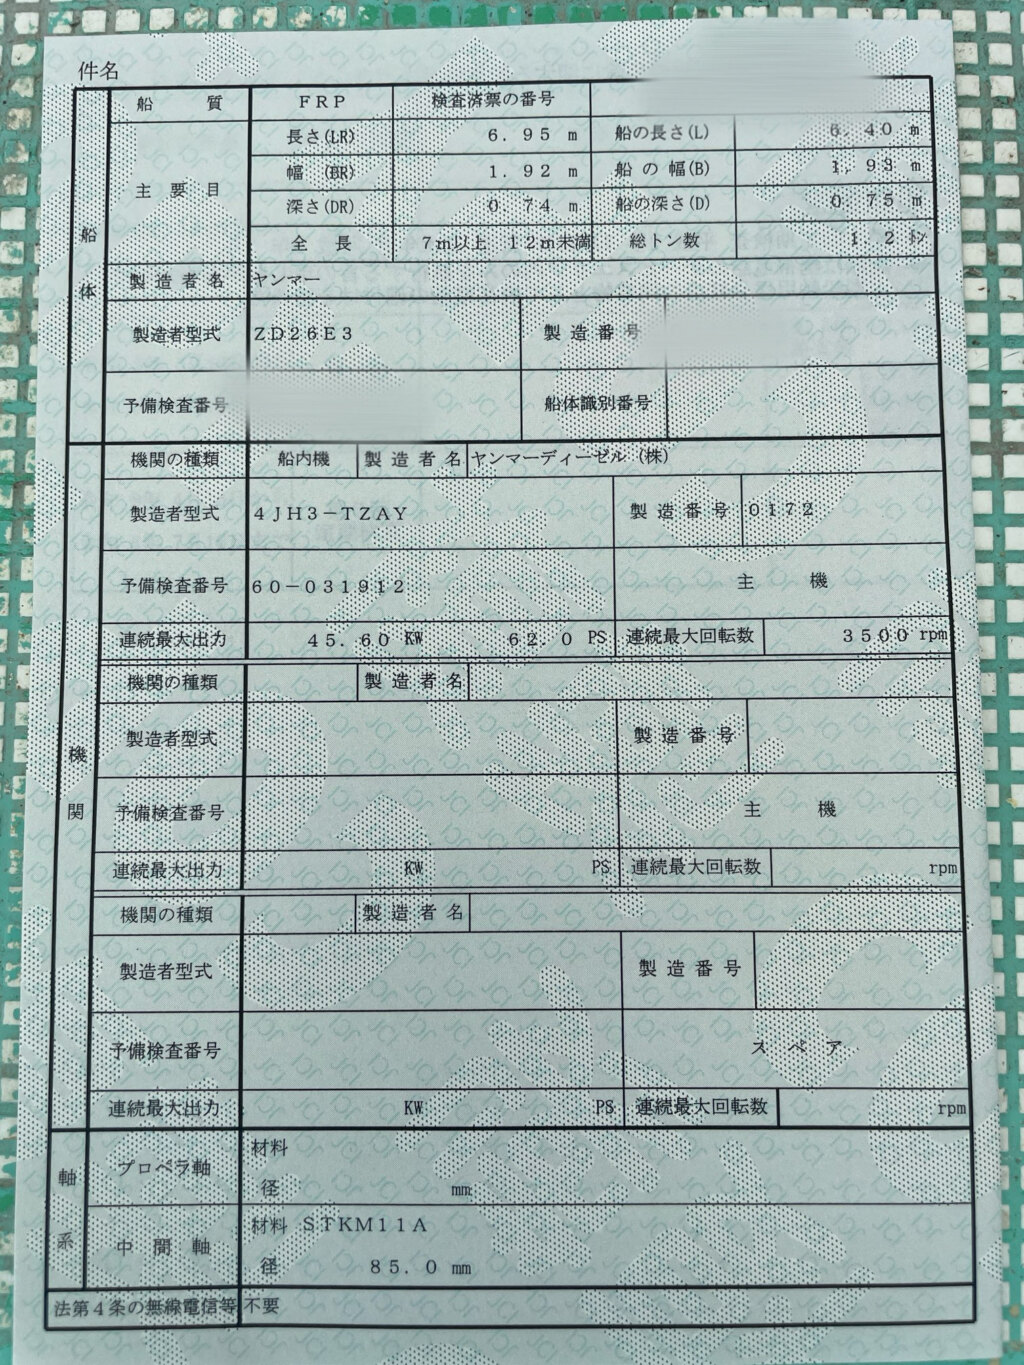 件名
船体
船質 ＦＲＰ 検査済票の番号
主要目 長さ(LR) ６．９５ m 船の長さ(L) ６．４０ m
幅 (BR) １．９２ m 船の幅(B) １．９３ m
深さ(DR) ０．７４ m 船の深さ(D) ０．７５ m
全長 ７ｍ以上 １２ｍ未満 総トン数 １．２ トン
製造者名 ヤンマー
製造者型式 ＺＤ２６Ｅ３ 製造番号
予備検査番号 船体識別番号
機関
機関の種類 船内機 製造者名 ヤンマーディーゼル（株）
製造者型式 ４ＪＨ３－ＴＺＡＹ 製造番号 ０１７２
予備検査番号 ６０－０３１９１２ 主機
連続最大出力 ４５．６０ KW ６２．０ PS 連続最大回転数 ３５００ rpm
機関の種類 製造者名
製造者型式 製造番号
予備検査番号 主機
連続最大出力 KW PS 連続最大回転数 rpm
機関の種類 製造者名
製造者型式 製造番号
予備検査番号 スペア
連続最大出力 KW PS 連続最大回転数 rpm
軸系
プロペラ軸 材料
径 mm
中間軸 材料 ＳＴＫＭ１１Ａ
径 ８５．０ mm
法第４条の無線電信等 不要